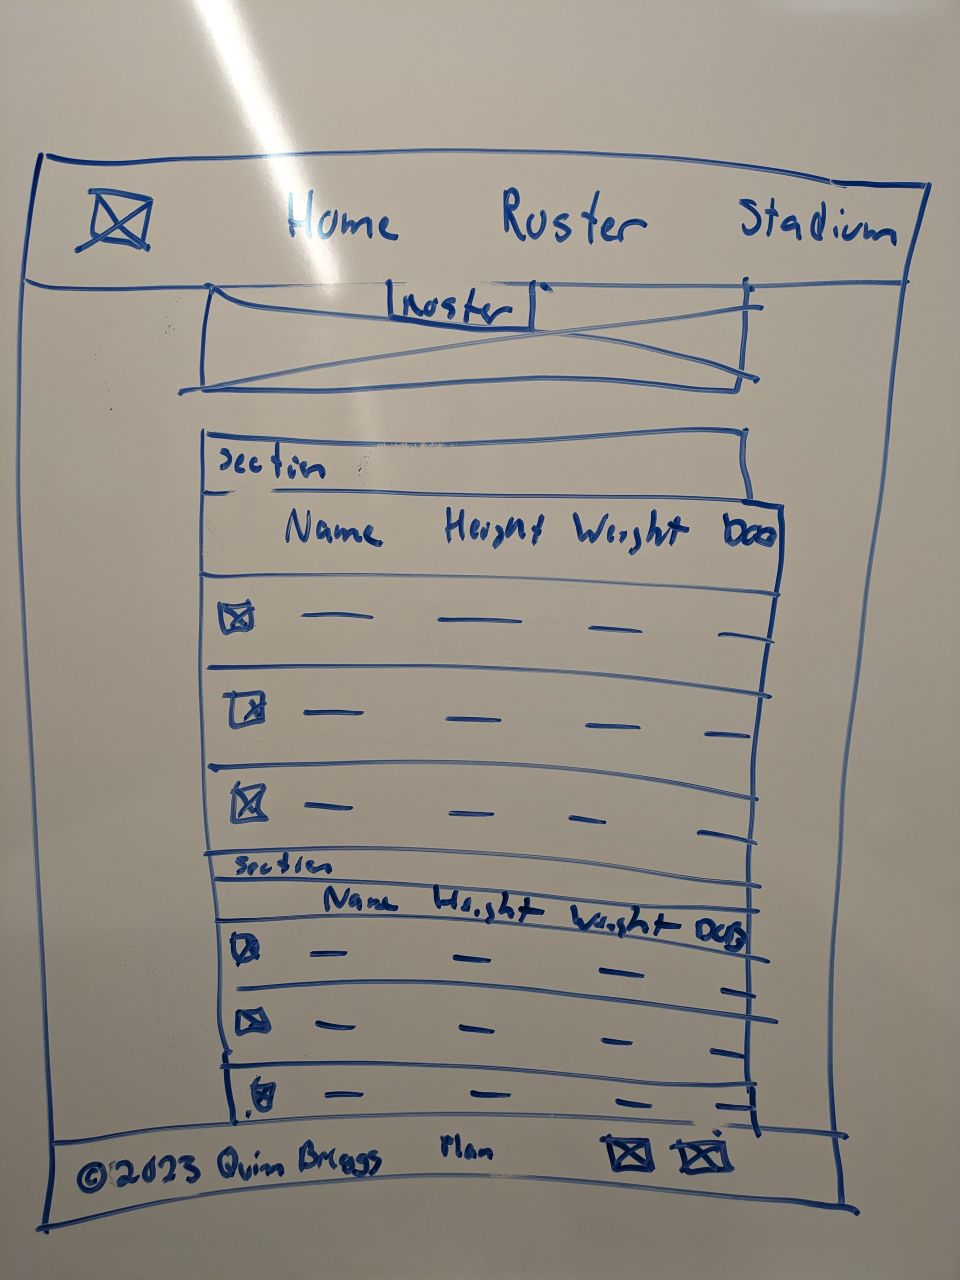 Home Roster Stadium
Roster
Section
Name Height Weight DOB
Section
Name Height Weight DOB
© 2023 Quinn Briggs Plan